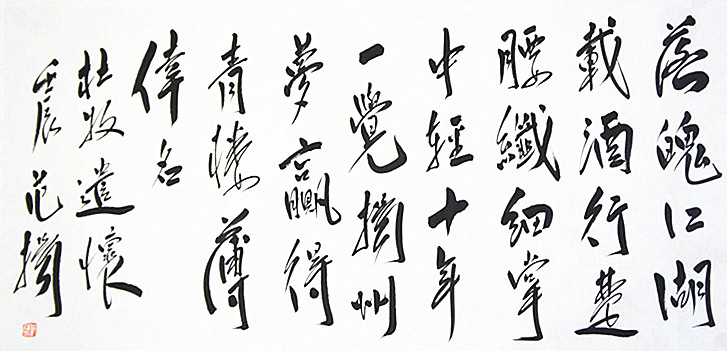 落魄江湖
載酒行楚
腰纖細掌
中輕十年
一覺揚州
夢贏得
青樓薄
偉名
杜牧遣懷
壬辰范揚